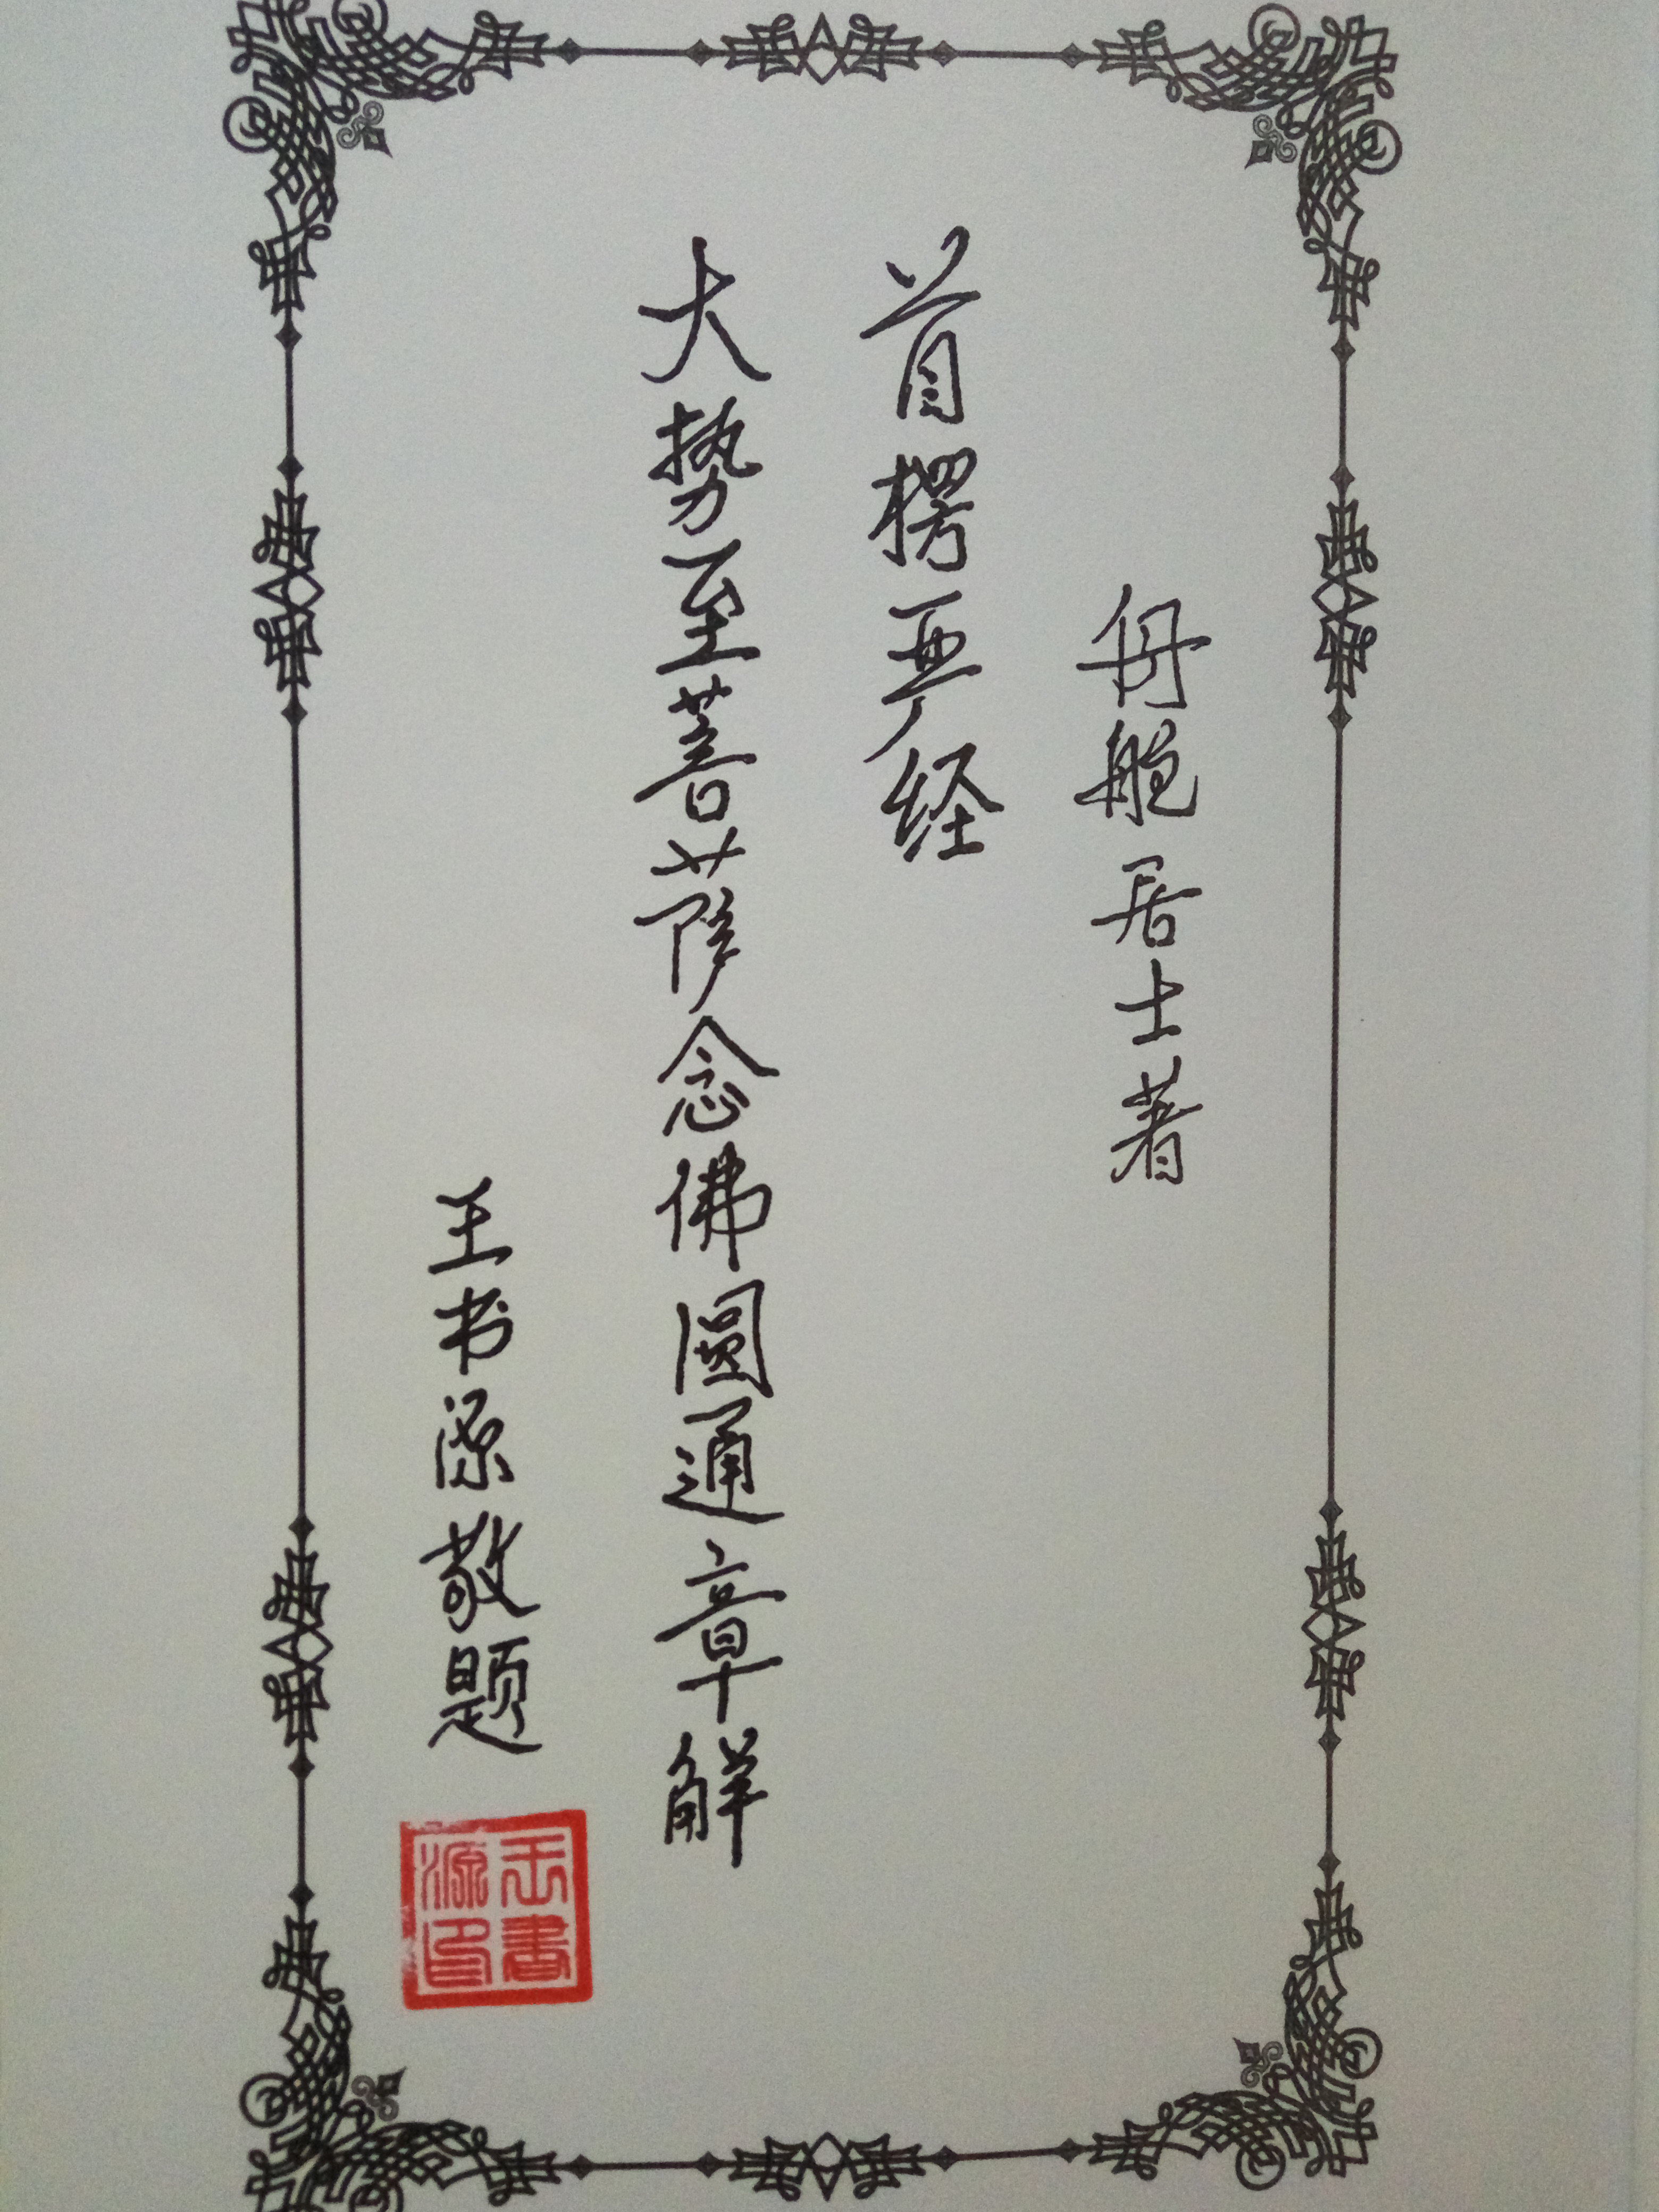 舟居士著
首楞严经
大势至菩萨念佛圆通章解
王书源敬题
王書源印